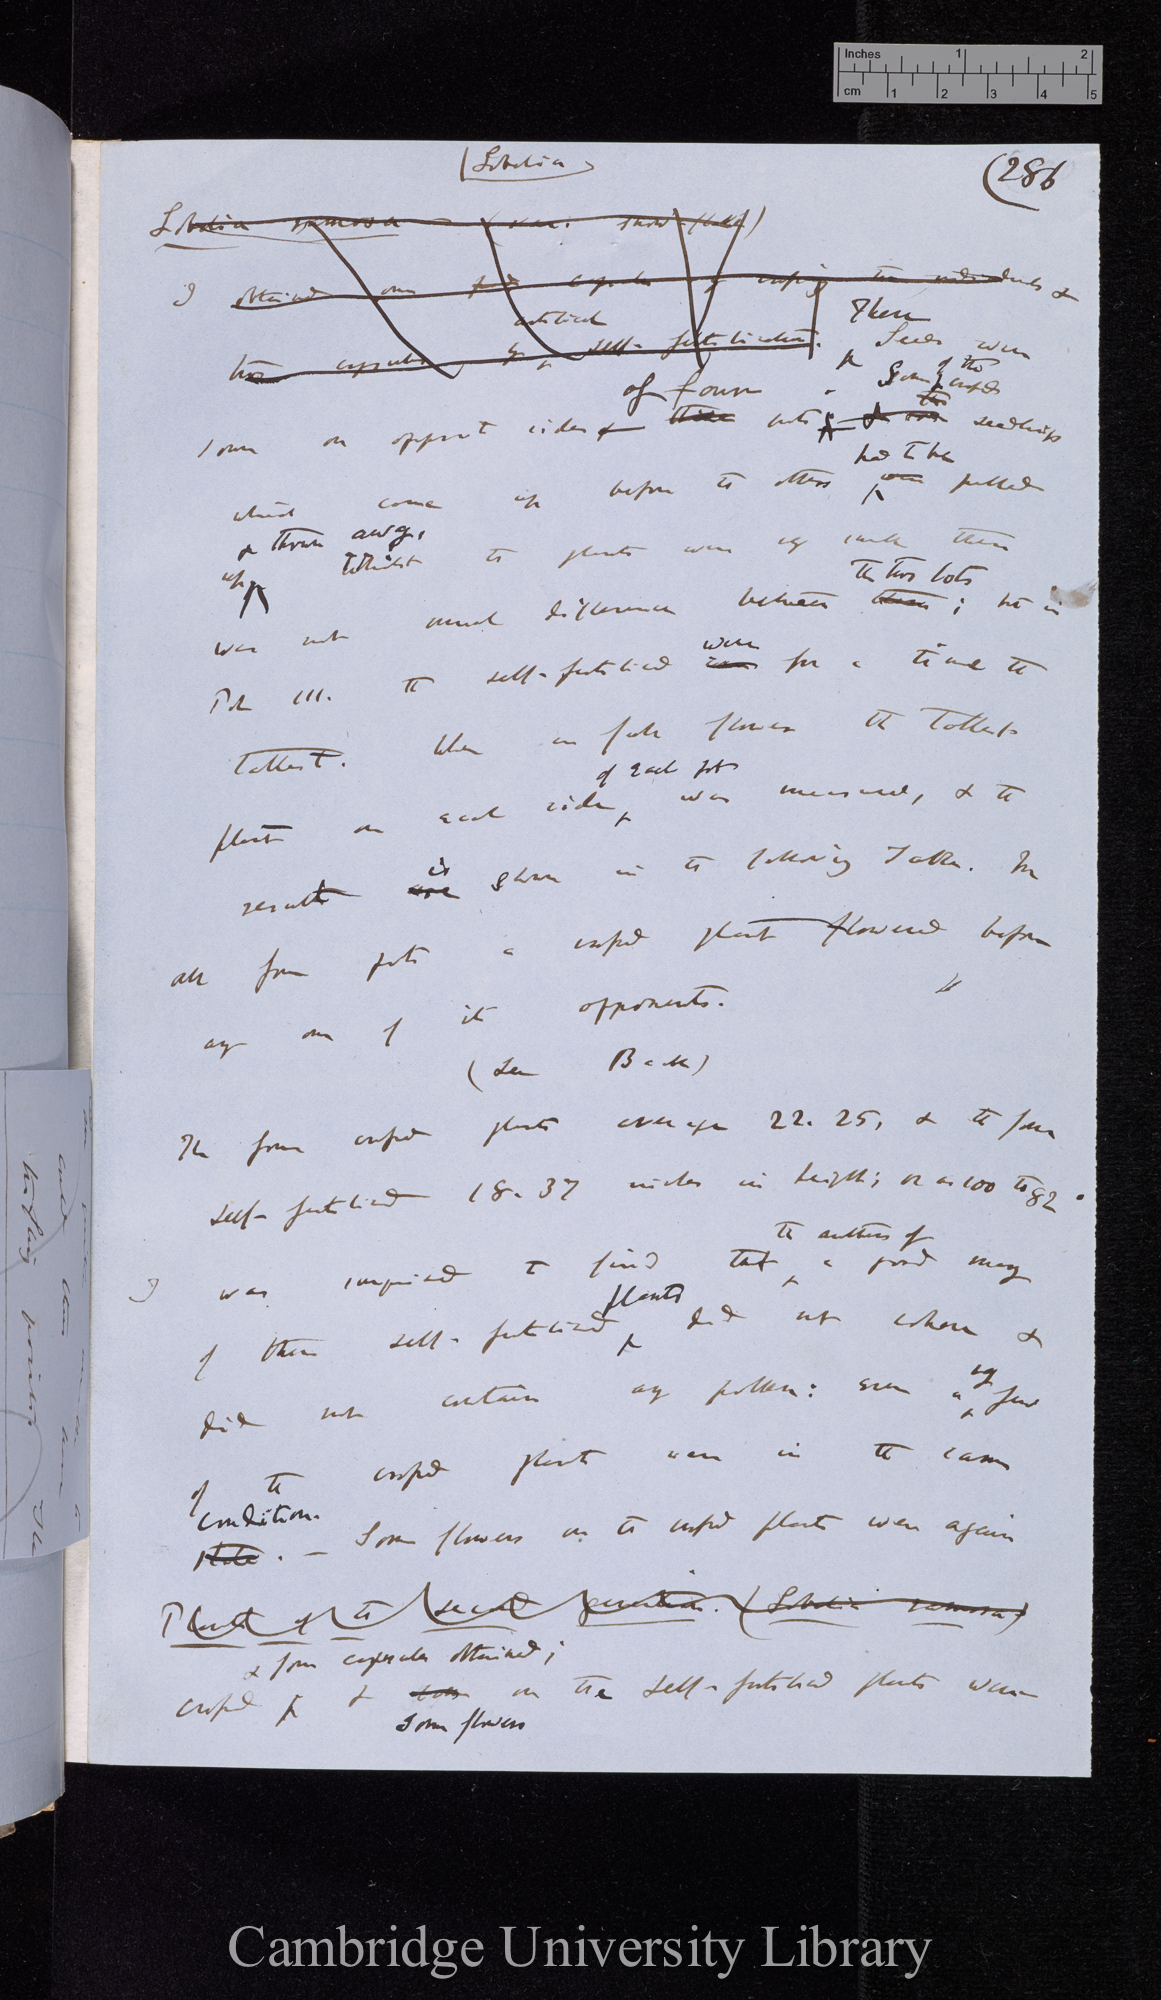 Inches 1 2
cm 1 2 3 4 5
(Lobelia)
(286
Lobelia ramosa — (var. snow-flake)
I obtained one capsule by crossing two individuals &
artificial These
two capsules by self-fertilisation. Seeds were
of four Some of the crossed
sown on opposite sides of three pots, & the seedlings
had to be
which came up before the others were pulled
& thrown away.
up Whilst the plants were very small there
the two lots
was not much difference between them; but in
were
Pot III. the self-fertilised was for a time the
tallest. When in full flower the tallest
of each pot
plant on each side was measured, & the
is
result are shown in the following Table. In
all four pots a crossed plant flowered before
any one of its opponents.
(See Back)
The four crossed plants average 22.25, & the four
self-fertilised 18.37 inches in height; or as 100 to 82.
the anthers of
I was surprised to find that a good many
plants
of these self-fertilised did not cohere &
did not contain any pollen: even a very few
of the crossed plants were in the same
condition.
state. — Some flowers on the crossed plants were again
Plants of the second generation. (Lobelia ramosa)
& four capsules obtained;
crossed & on the self-fertilised plants were
Some flowers
Cambridge University Library